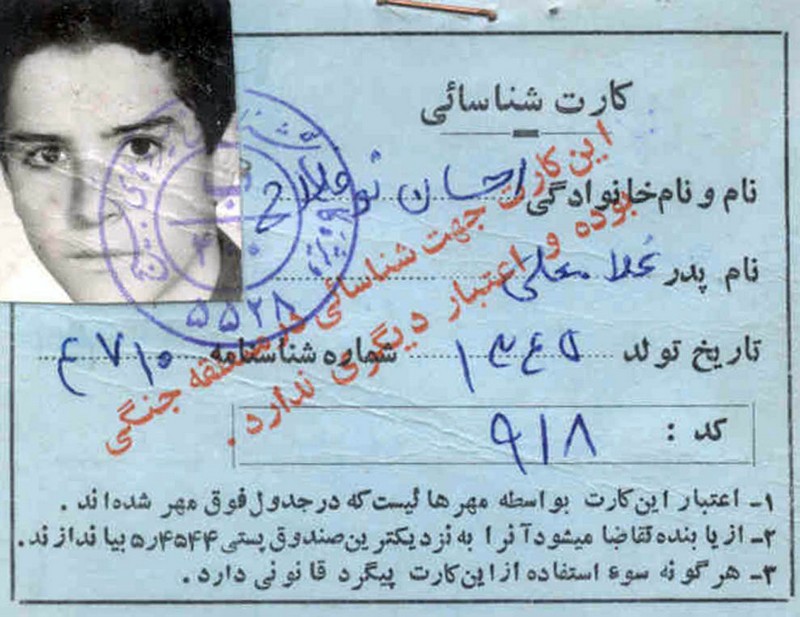 کارت شناسائی
نام و نام‌خانوادگی احسان فلاح
نام پدر غلامعلی
تاریخ تولد ۱۳۴۵ شماره شناسنامه ۴۷۱۰
کد : ۹۱۸
این کارت جهت شناسائی در منطقه جنگی
بوده و اعتبار دیگری ندارد .
۵۵۲۸
۱- اعتبار این کارت بواسطه مهرهائیست که در جدول فوق مهر شده‌اند .
۲- از یابنده تقاضا میشود آنرا به نزدیکترین صندوق پستی ۵٫۴۵۴۴ بیاندازند.
۳- هر گونه سوء استفاده از این کارت پیگرد قانونی دارد .